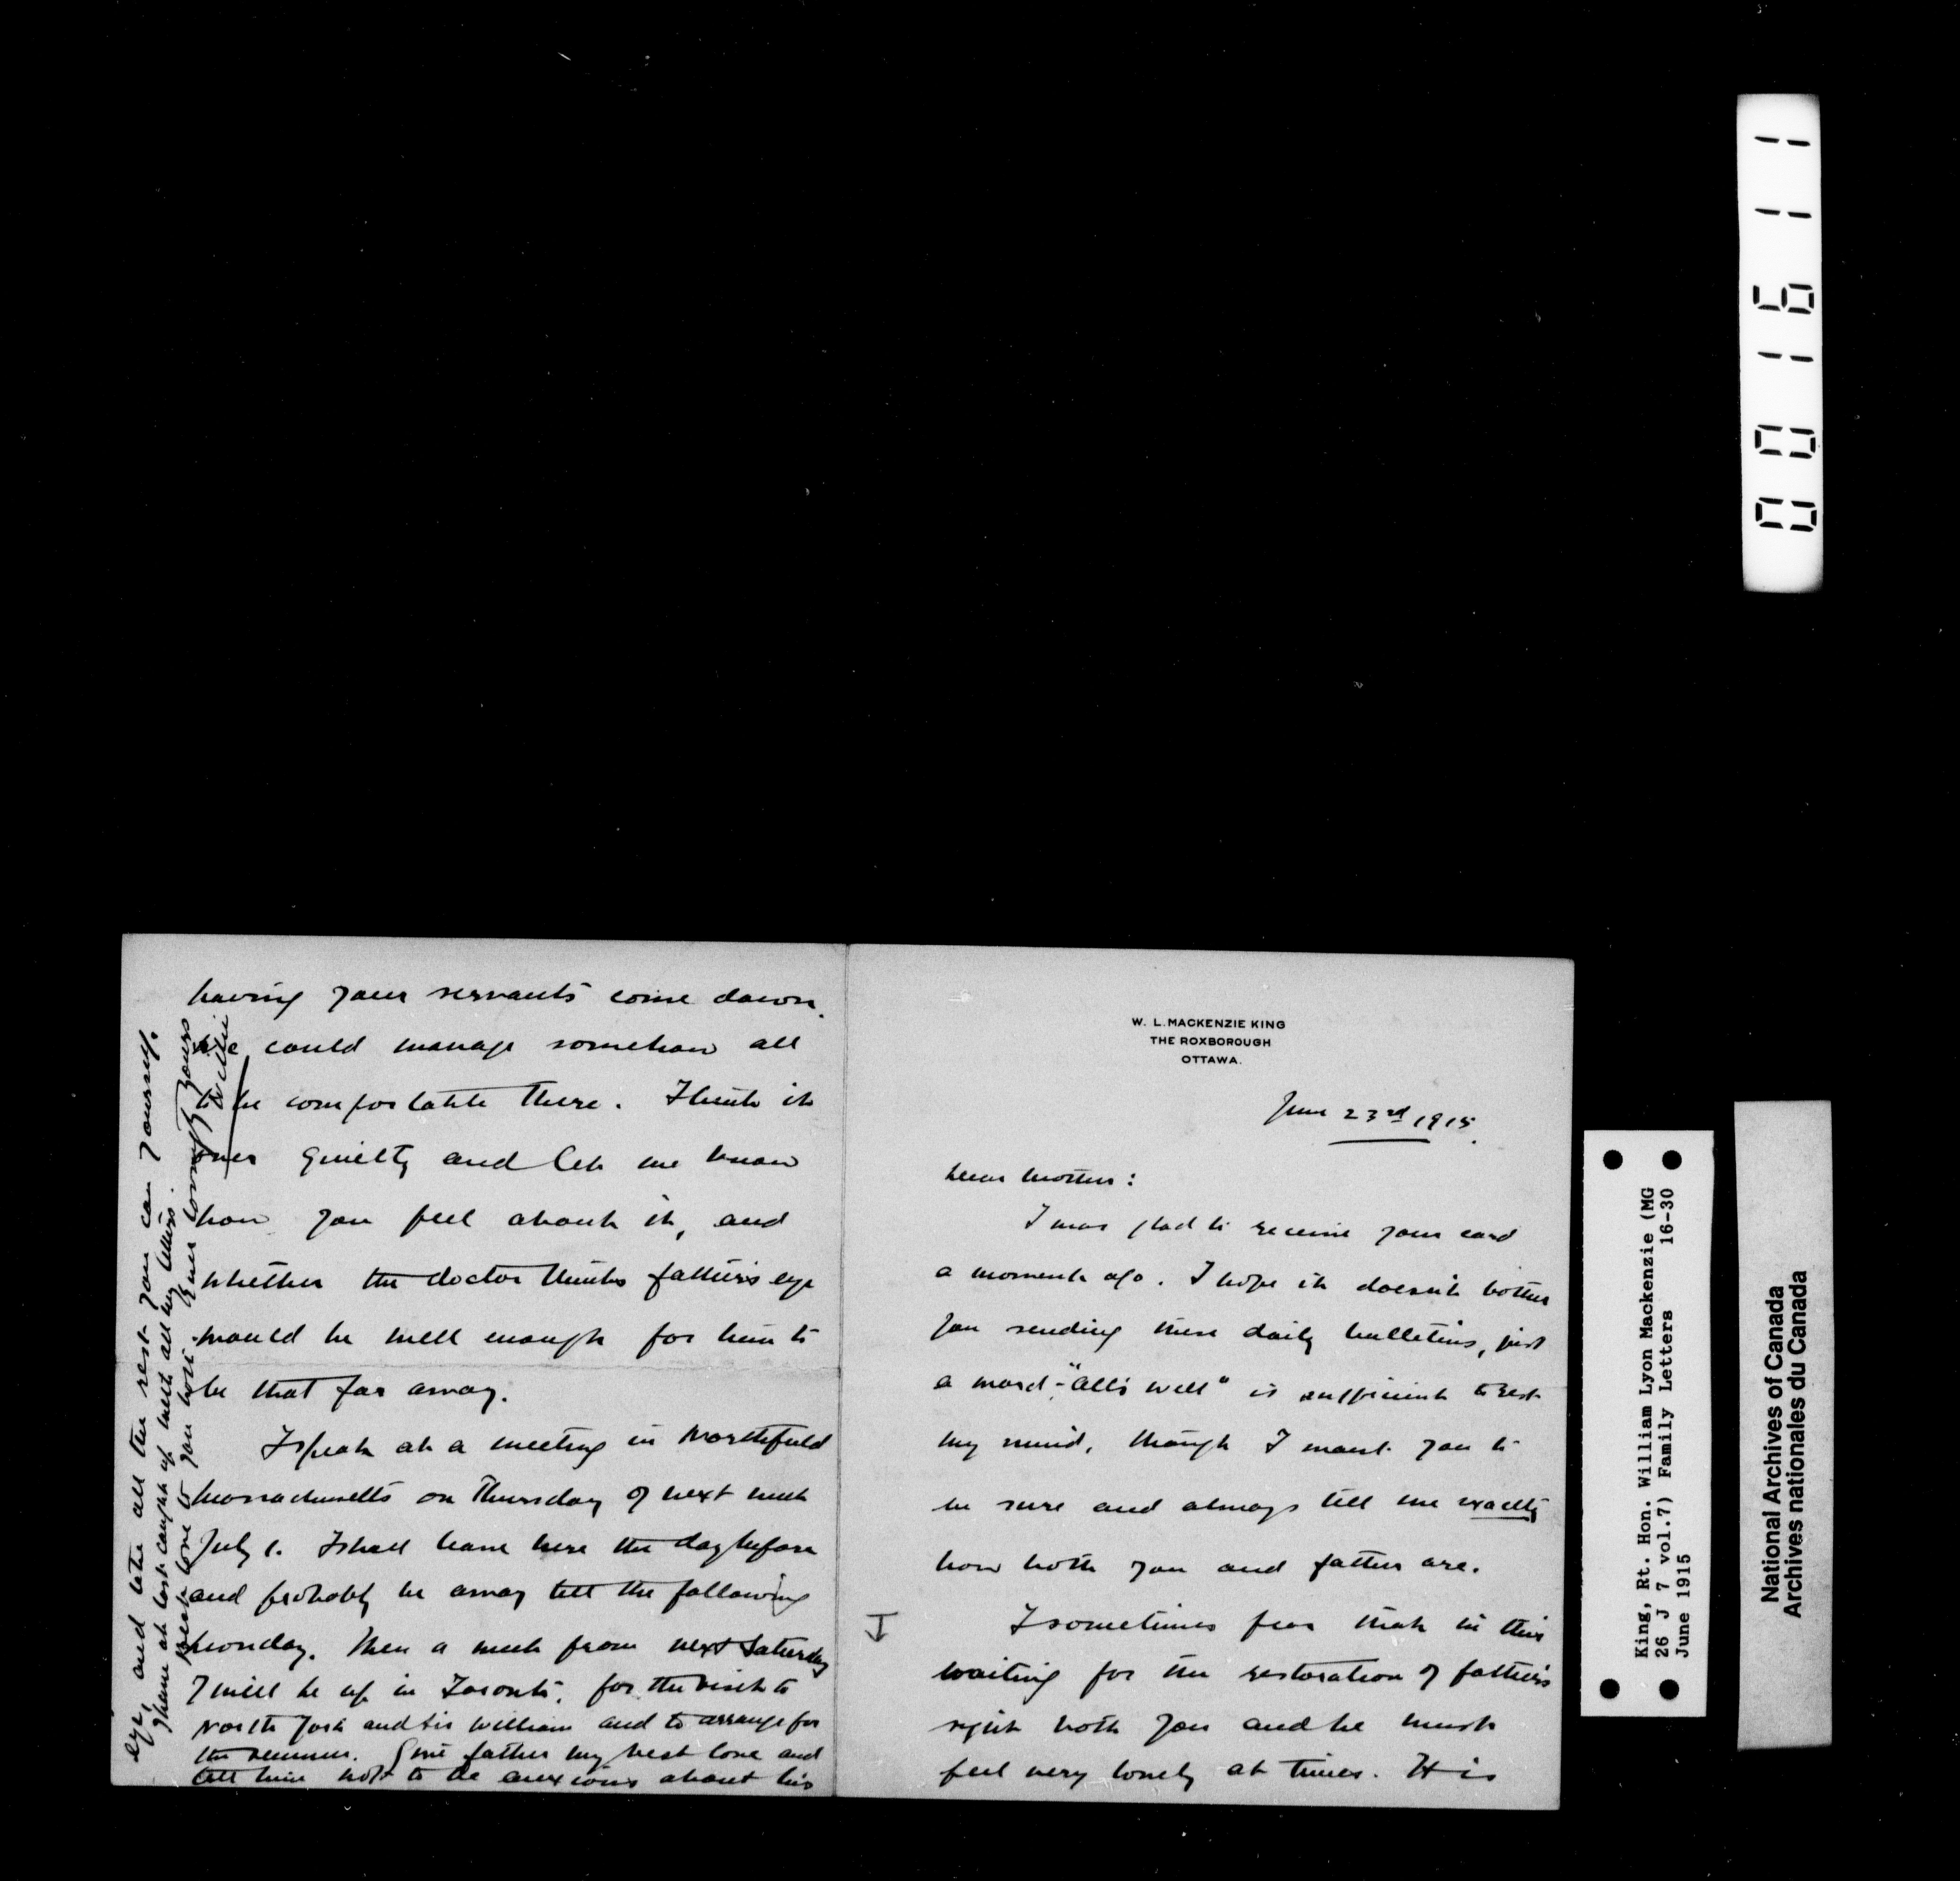 W. L. MACKENZIE KING
THE ROXBOROUGH
OTTAWA.
June 23rd 1915.
Dear Mother:
I was glad to receive your card
a moment ago. I hope it doesn't bother
you sending these daily bulletins, just
a word - "All's well" is sufficient to rest
my mind, though I want you to
be sure and always tell me exactly
how both you and father are.
I sometimes fear that in this
waiting for the restoration of father's
sight both you and he must
feel very lonely at times. It is
having your servants come down.
We could manage somehow all
to be comfortable there. Think it
over quietly and let me know
how you feel about it, and
whether the doctor thinks father's eye
would be well enough for him to
be that far away.
I speak at a meeting in Northfield
Massachusetts on Thursday of next week
July 1. I shall leave here the day before
and probably be away till the following
Monday. Then a week from next Saturday
I will be up in Toronto, for the visit to
North York and Sir William and to arrange for
the summer. Give father my best love and
tell him not to be anxious about his
eye, and take all the rest you can yourself.
I have at last caught up with all my letters.
Best love to you both. Ever lovingly yours
Willie
King, Rt. Hon. William Lyon Mackenzie (MG
26 J 7 vol.7) Family Letters 16-30
June 1915
National Archives of Canada
Archives nationales du Canada
001611